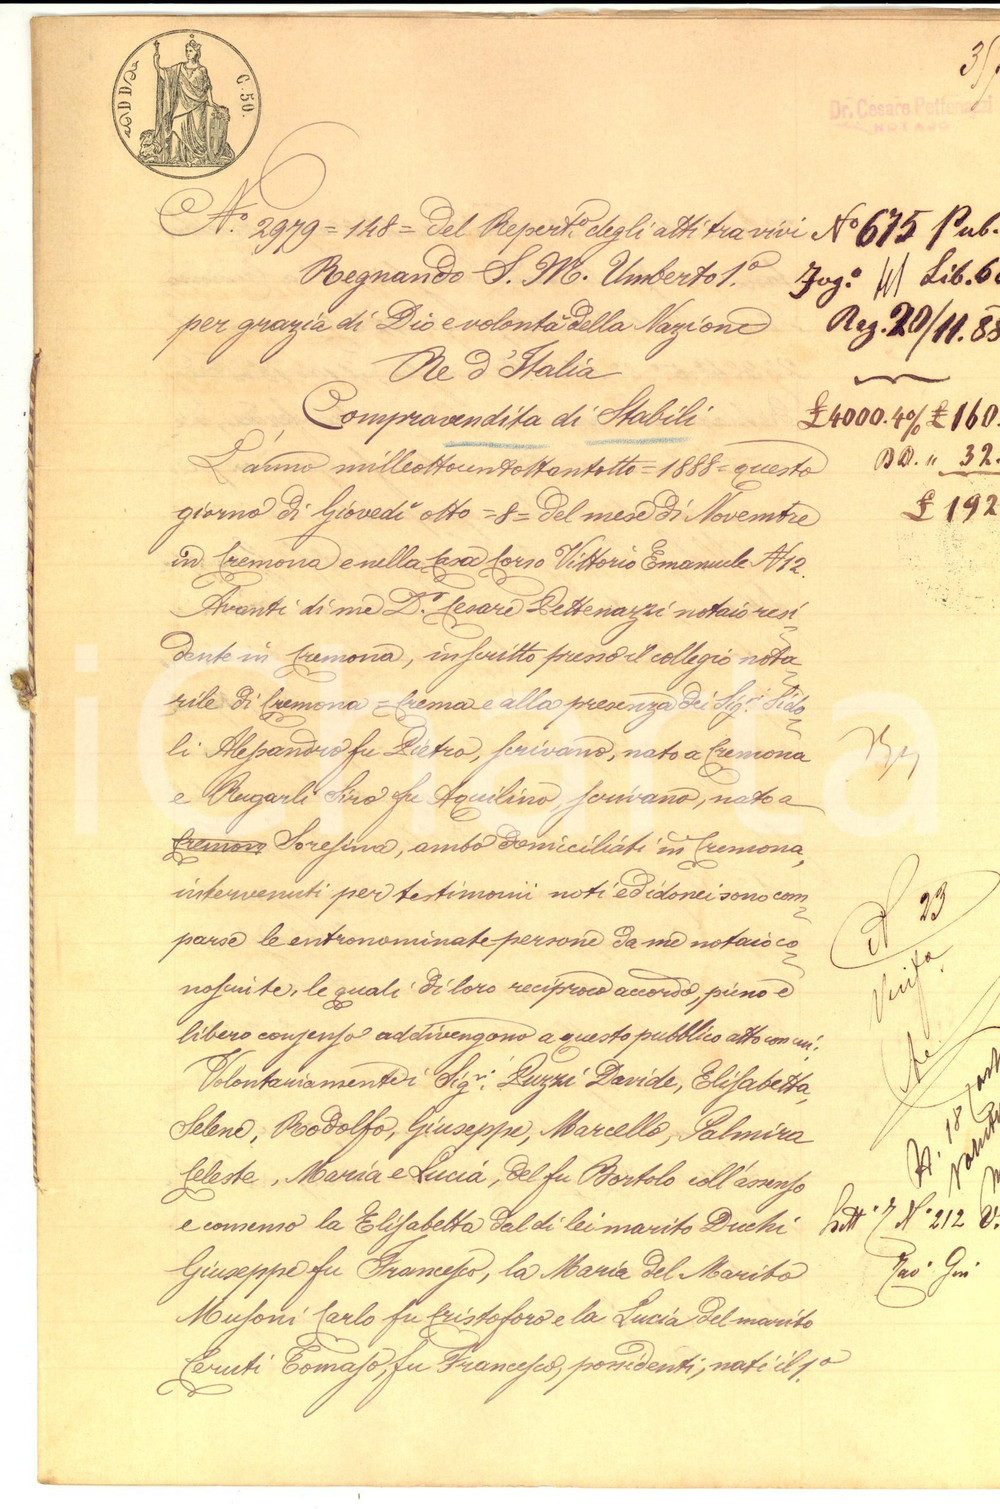 C. 50.
Dr. Cesare Pettenazzi
NOTAIO
N.º 2979 = 148 = del Repert.º degli atti tra vivi
Regnando S. M. Umberto 1.º
per grazia di Dio e volontà della Nazione
Re d'Italia
Compravendita di Stabili
L'anno milleottocentottantotto = 1888 = questo
giorno di Giovedì otto = 8 = del mese di Novembre
in Cremona e nella Casa Corso Vittorio Emanuele Nº 12.
Avanti di me D.r Cesare Pettenazzi notaio resi
dente in Cremona, inscritto presso il collegio nota
rile di Cremona = Crema e alla presenza dei Sig.ri Sido
li Alessandro fu Pietro, scrivano, nato a Cremona
e Rugarli Siro fu Aquilino, scrivano, nato a
Cremona Soresina, ambo domiciliati in Cremona,
intervenuti per testimonii noti ed idonei sono com
parse le entronominate persone da me notaio co
nosciute, le quali di loro reciproco accordo, pieno e
libero consenso addivengono a questo pubblico atto con cui:
Volontariamente i Sig.ri Puzzi Davide, Elisabetta,
Selene, Rodolfo, Giuseppe, Marcello, Palmira
Celeste, Maria e Lucia, del fu Bortolo coll'assenso
e consenso la Elisabetta dal di lei marito Duchi
Giuseppe fu Francesco, la Maria del Marito
Musoni Carlo fu Cristoforo e la Lucia del marito
Ceruti Tomaso, fu Francesco, possidenti, nati il 1.º
Nº 675 Pub.
Fog.º 111 Lib. 6
Reg. 20/11. 88
£ 4000. 4% £ 160.
DD. " 32.
£ 192
A 23
N. 18
Nº 212